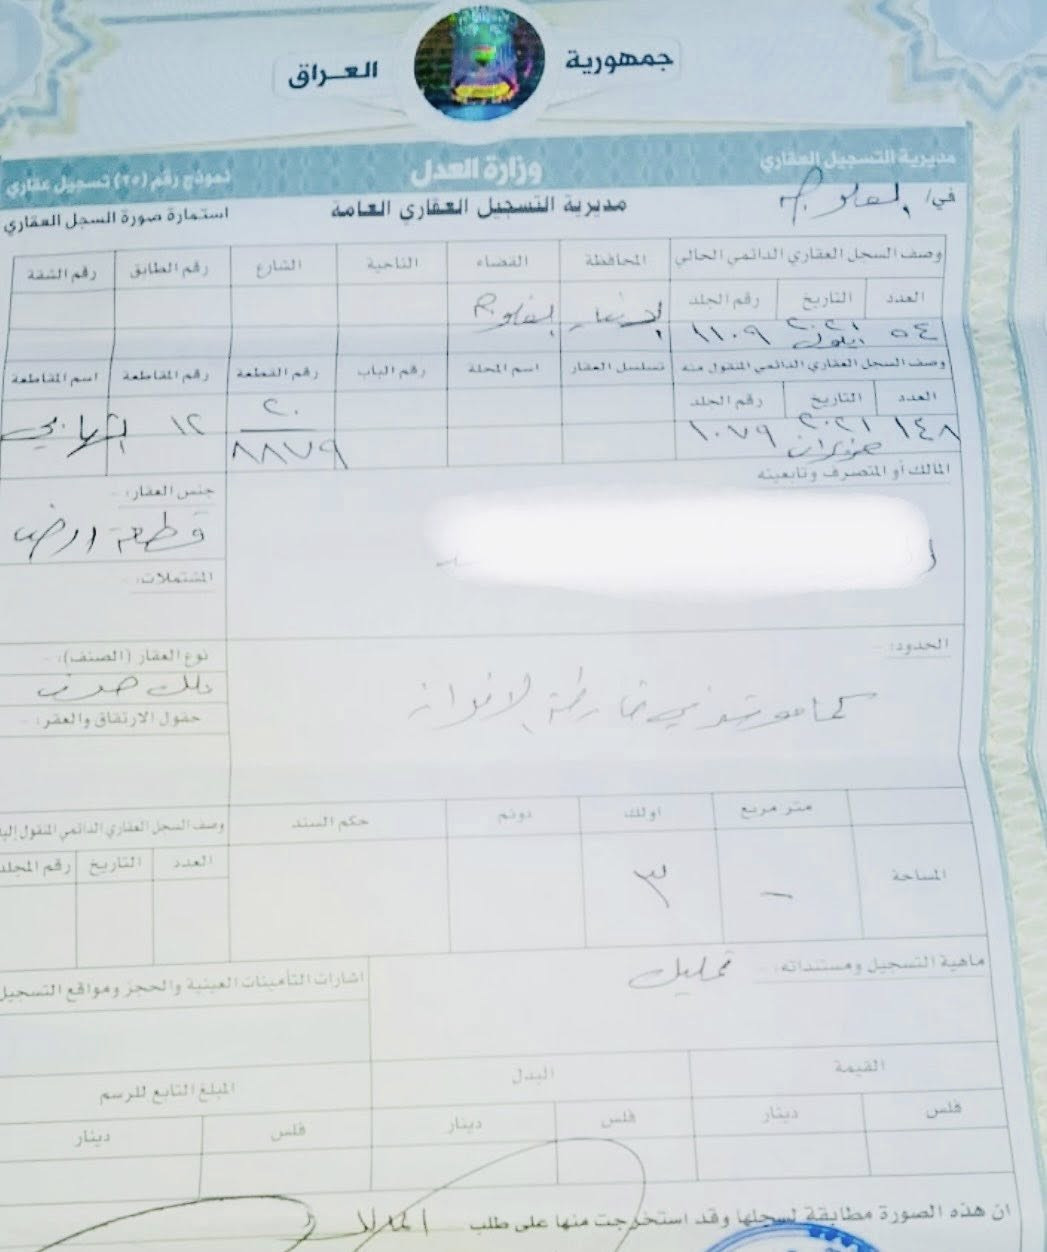 جمهورية العراق
مديرية التسجيل العقاري وزارة العدل نموذج رقم (٢٥) تسجيل عقاري
في/ الفلوجة مديرية التسجيل العقاري العامة استمارة صورة السجل العقاري
وصف السجل العقاري الدائمي الحالي المحافظة القضاء الناحية الشارع رقم الطابق رقم الشقة
العدد التاريخ رقم الجلد الانبار الفلوجة
٥٤ ايلول ٢٠٢١ ١١٠٩
وصف السجل العقاري الدائمي المنقول منه تسلسل العقار اسم المحلة رقم الباب رقم القطعة رقم المقاطعة اسم المقاطعة
العدد التاريخ رقم الجلد ٢٠
١٤٨ حزيران ٢٠٢١ ١٠٧٩ ٨٨٧٩ ١٢
المالك أو المتصرف وتابعيته
جنس العقار:-
قطعة ارض
المشتملات:-
الحدود:-
نوع العقار (الصنف):-
ملك صرف
كما هو مثبت في خارطة الافراز
حقول الارتفاق والعقر:-
متر مربع اولك دونم حكم السند وصف السجل العقاري الدائمي المنقول إليه
العدد التاريخ رقم المجلد
المساحة - ٣
ماهية التسجيل ومستنداته:- تمليك
اشارات التأمينات العينية والحجز ومواقع التسجيل
القيمة البدل المبلغ التابع للرسم
فلس دينار فلس دينار فلس دينار
ان هذه الصورة مطابقة لسجلها وقد استخرجت منها على طلب المالك